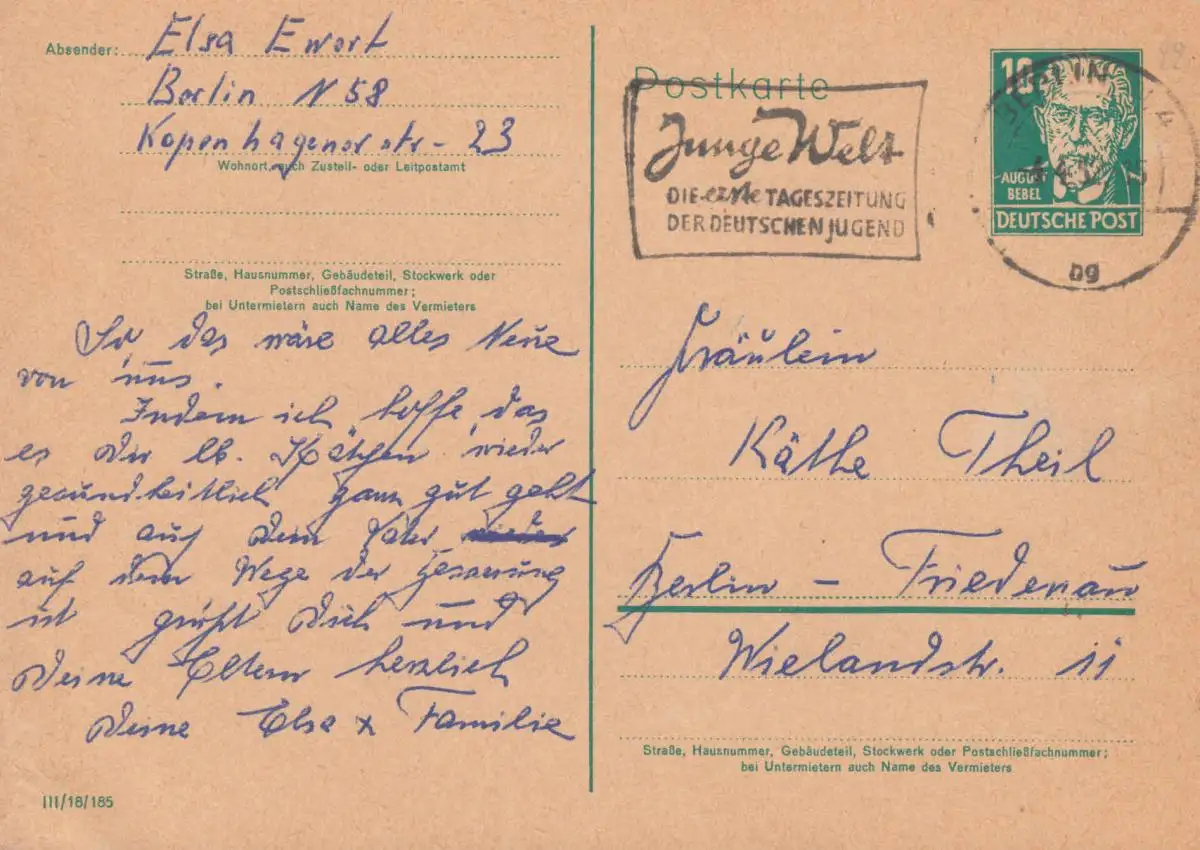 Absender: Elsa Ewert
Berlin N 58
Kopenhagener str - 23
Wohnort, auch Zustell- oder Leitpostamt
Straße, Hausnummer, Gebäudeteil, Stockwerk oder
Postschließfachnummer;
bei Untermietern auch Name des Vermieters
So, das wäre alles Neue
von uns.
Indem ich hoffe, das
es Dir lb. Käthchen wieder
gesundheitlich ganz gut geht
und auch Dein Vater wieder
auf dem Wege der Besserung
ist grüßt Dich und
Deine Eltern herzlich
Deine Elsa & Familie
III/18/185
Postkarte
Junge Welt
DIE erste TAGESZEITUNG
DER DEUTSCHEN JUGEND
10
AUGUST
BEBEL
DEUTSCHE POST
BERLIN
bg
Fräulein
Käthe Theil
Berlin - Friedenau
Wielandstr. 11
Straße, Hausnummer, Gebäudeteil, Stockwerk oder Postschließfachnummer;
bei Untermietern auch Name des Vermieters